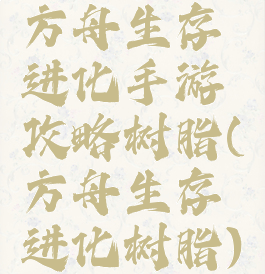 方舟生存
进化手游
攻略树脂(
方舟生存
进化树脂)